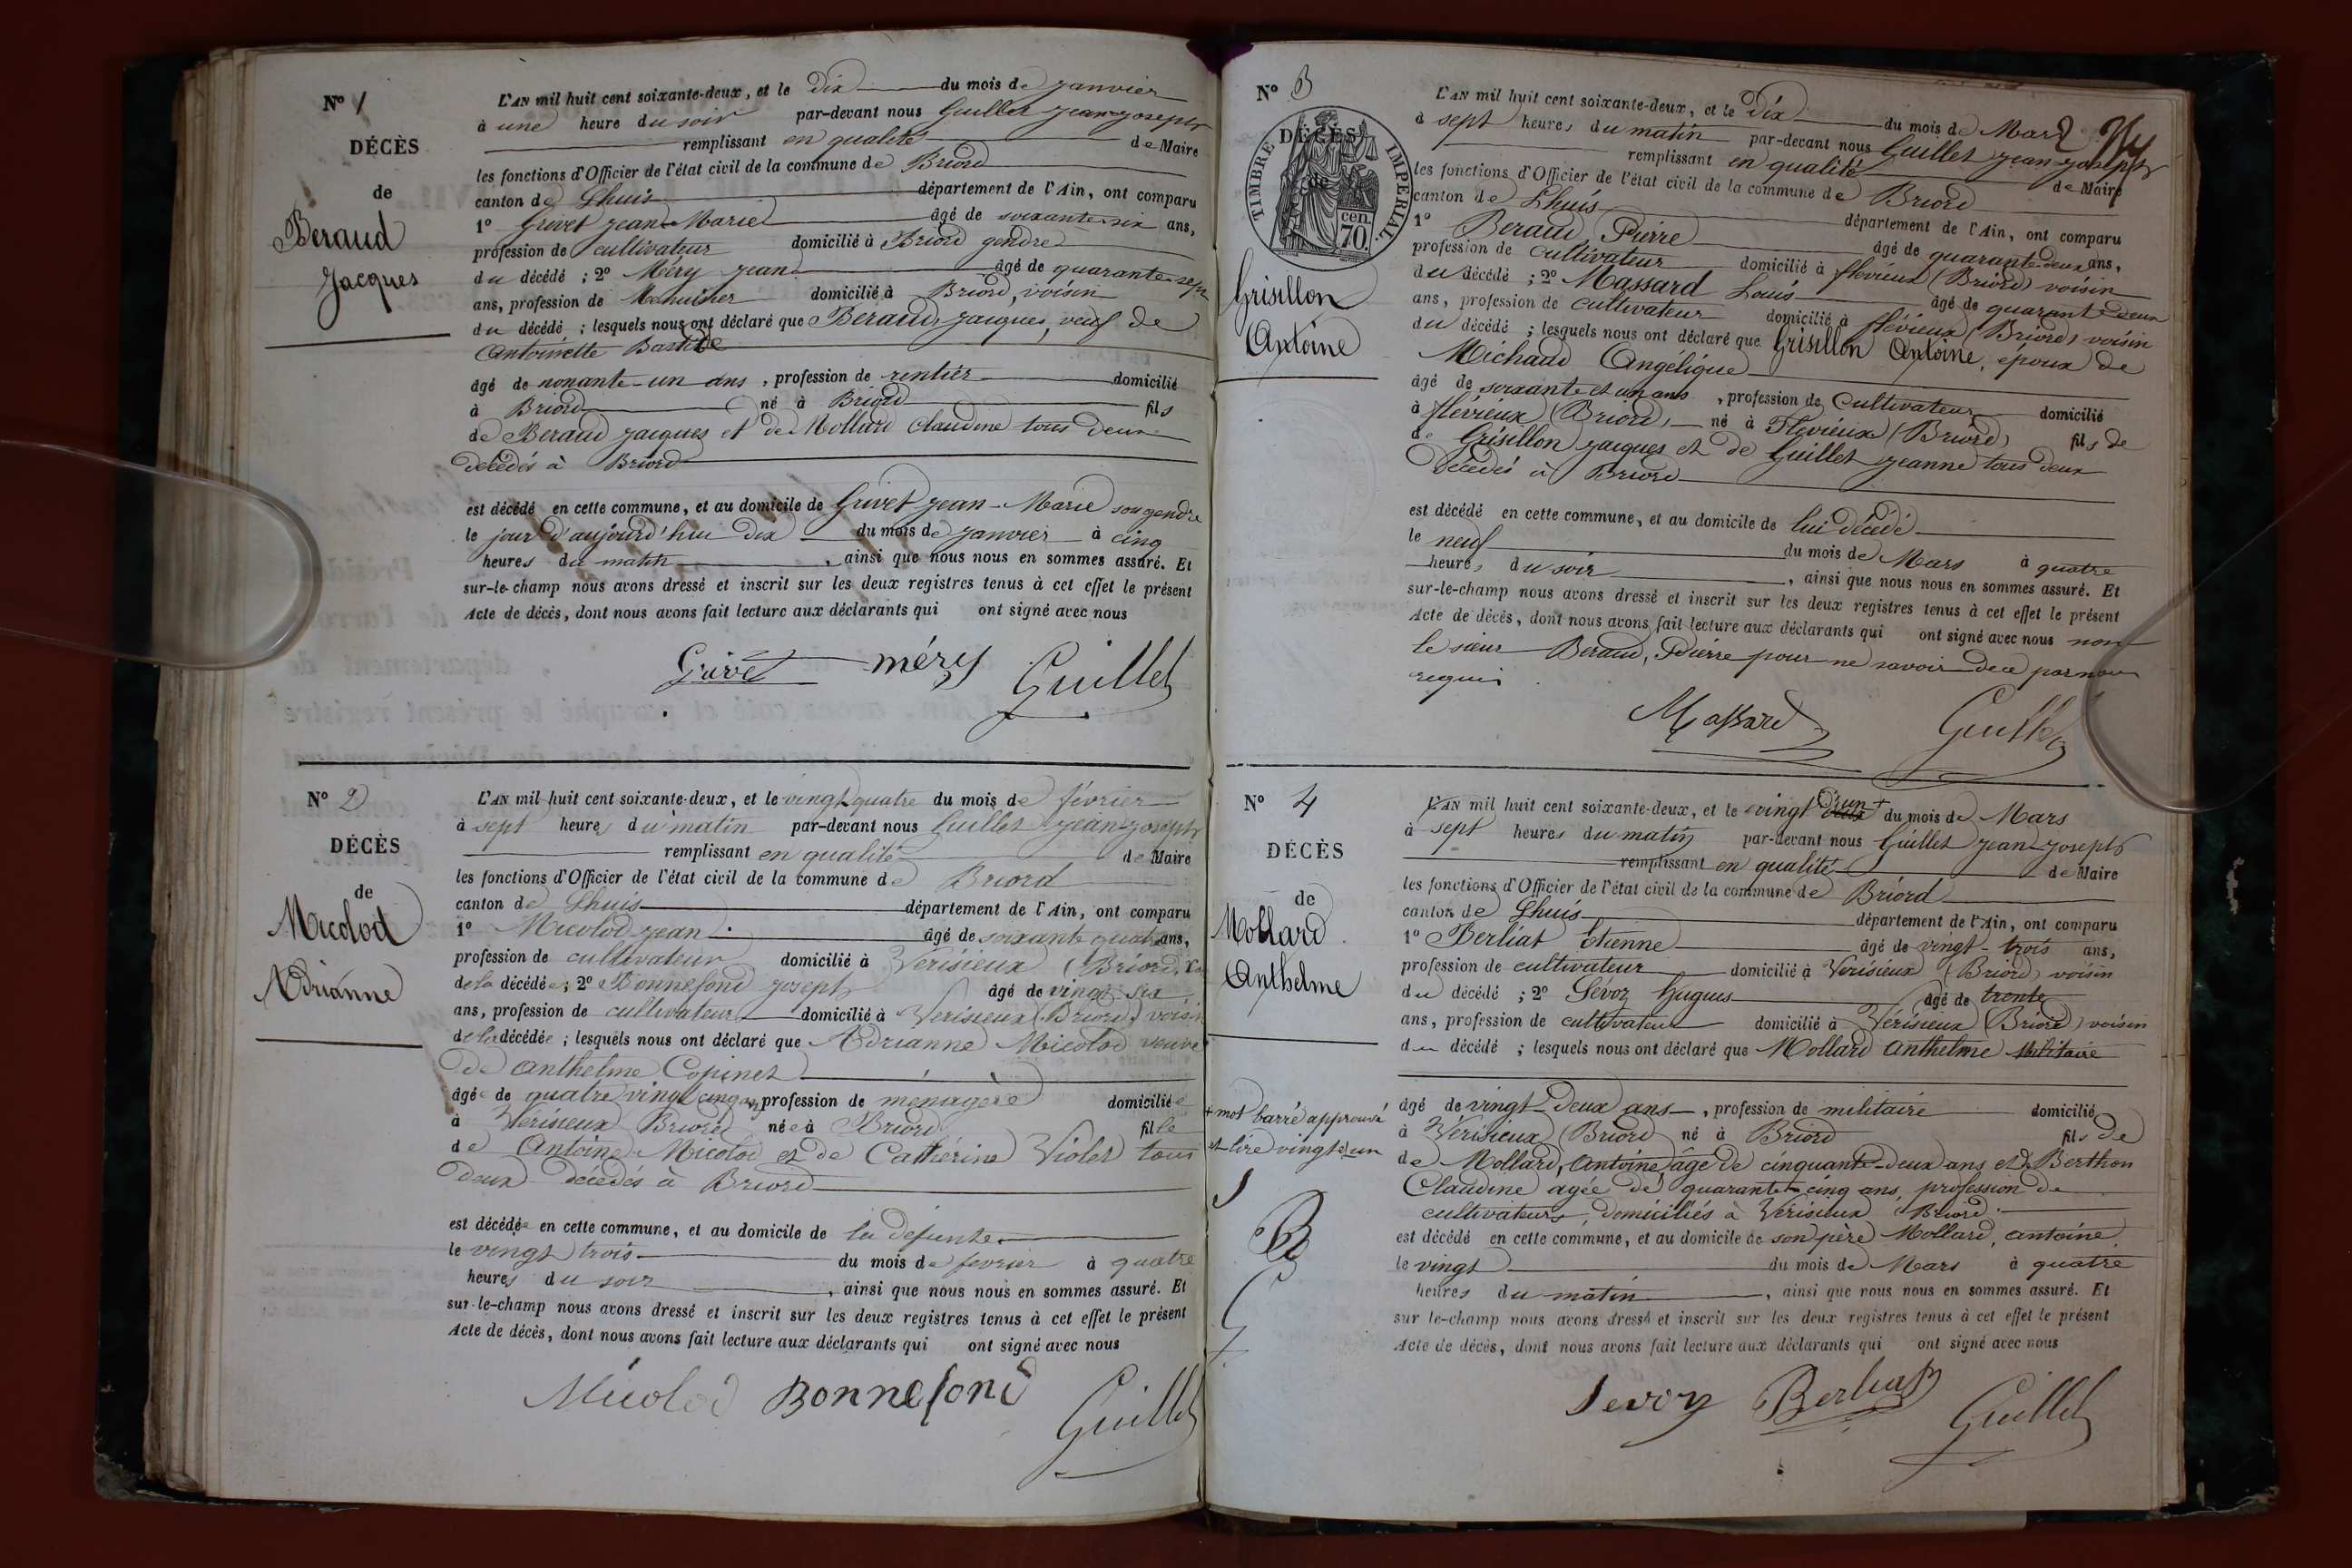 N° 1
DÉCÈS
de
Beraud
Jacques
L'AN mil huit cent soixante-deux, et le Dix du mois de Janvier
à une heure du soir par-devant nous Guillet Jean-Joseph
remplissant en qualité de Maire
les fonctions d'Officier de l'état civil de la commune de Briord
canton de Lhuis département de l'Ain, ont comparu
1° Grivet Jean-Marie âgé de soixante-six ans,
profession de cultivateur domicilié à Briord gendre
du décédé ; 2° Méry Jean âgé de quarante-sept
ans, profession de Menuisier domicilié à Briord, voisin
du décédé ; lesquels nous ont déclaré que Beraud Jacques, veuf de
Antoinette Bastide
âgé de nonante-un ans, profession de rentier domicilié
à Briord né à Briord fils
de Beraud Jacques et de Mollard Claudine tous deux
décédés à Briord
est décédé en cette commune, et au domicile de Grivet Jean-Marie son gendre
le jour d'aujourd'hui dix du mois de Janvier à cinq
heures du matin, ainsi que nous nous en sommes assuré. Et
sur-le-champ nous avons dressé et inscrit sur les deux registres tenus à cet effet le présent
Acte de décès, dont nous avons fait lecture aux déclarants qui ont signé avec nous
Grivet méry Guillet
N° 2
DÉCÈS
de
Micolod
Adrianne
L'AN mil huit cent soixante-deux, et le vingt quatre du mois de février
à sept heures du matin par-devant nous Guillet Jean-Joseph
remplissant en qualité de Maire
les fonctions d'Officier de l'état civil de la commune de Briord
canton de Lhuis département de l'Ain, ont comparu
1° Micolod Jean âgé de soixante quatre ans,
profession de cultivateur domicilié à Verisieux (Briord)
de la décédée ; 2° Bonnefond Joseph âgé de vingt six
ans, profession de cultivateur domicilié à Verisieux (Briord) voisin
de la décédée ; lesquels nous ont déclaré que Adrianne Micolod veuve
de Anthelme Copinet
âgée de quatre vingt cinq ans, profession de ménagère domiciliée
à Vérisieux Briord née à Briord fille
de Antoine Micolod et de Cathérine Violet tous
deux décédés à Briord
est décédée en cette commune, et au domicile de la défunte
le vingt trois du mois de fevrier à quatre
heures du soir, ainsi que nous nous en sommes assuré. Et
sur-le-champ nous avons dressé et inscrit sur les deux registres tenus à cet effet le présent
Acte de décès, dont nous avons fait lecture aux déclarants qui ont signé avec nous
Micolod Bonnefond Guillet
N° 3
DÉCÈS
de
TIMBRE IMPÉRIAL.
70 cen.
Grisillon
Antoine
L'AN mil huit cent soixante-deux, et le Dix du mois de Mars
à sept heures du matin par-devant nous Guillet Jean-Joseph
remplissant en qualité de Maire
les fonctions d'Officier de l'état civil de la commune de Briord
canton de Lhuis département de l'Ain, ont comparu
1° Beraud Pierre âgé de quarante-deux ans,
profession de cultivateur domicilié à flévieux (Briord) voisin
du décédé ; 2° Massard Louis âgé de quarante deux
ans, profession de cultivateur domicilié à flévieux (Briord) voisin
du décédé ; lesquels nous ont déclaré que Grisillon Antoine, epoux de
Michaud Angélique
âgé de soixante et un ans, profession de Cultivateur domicilié
à flévieux (Briord) né à Flévieux (Briord) fils de
de Grisillon Jacques et de Guillet Jeanne tous deux
décédés à Briord
est décédé en cette commune, et au domicile de lui décédé
le neuf du mois de Mars à quatre
heures du soir, ainsi que nous nous en sommes assuré. Et
sur-le-champ nous avons dressé et inscrit sur les deux registres tenus à cet effet le présent
Acte de décès, dont nous avons fait lecture aux déclarants qui ont signé avec nous non
le sieur Beraud, Pierre pour ne savoir de ce par nous
requis
Massard Guillet
N° 4
DÉCÈS
de
Mollard
Anthelme
+ mot barré approuvé
et lire vingt et un
L'AN mil huit cent soixante-deux, et le vingt deux et un + du mois de Mars
à sept heures du matin par-devant nous Guillet Jean-Joseph
remplissant en qualité de Maire
les fonctions d'Officier de l'état civil de la commune de Briord
canton de Lhuis département de l'Ain, ont comparu
1° Berliat Etienne âgé de vingt-trois ans,
profession de cultivateur domicilié à Verisieux (Briord) voisin
du décédé ; 2° Sévoz Hugues âgé de trente
ans, profession de cultivateur domicilié à Vérisieux (Briord) voisin
du décédé ; lesquels nous ont déclaré que Mollard Anthelme Militaire
âgé de vingt-deux ans, profession de militaire domicilié
à Vérisieux (Briord né à Briord fils de
de Mollard, Antoine âgé de cinquante-deux ans et de Berthon
Claudine agée de quarante-cinq ans, profession de
cultivateurs, domiciliés à Vérisieux Briord
est décédé en cette commune, et au domicile de son père Mollard, antoine
le vingt du mois de Mars à quatre
heures du matin, ainsi que nous nous en sommes assuré. Et
sur le-champ nous avons dressé et inscrit sur les deux registres tenus à cet effet le présent
Acte de décès, dont nous avons fait lecture aux déclarants qui ont signé avec nous
Sevoz Berliat Guillet